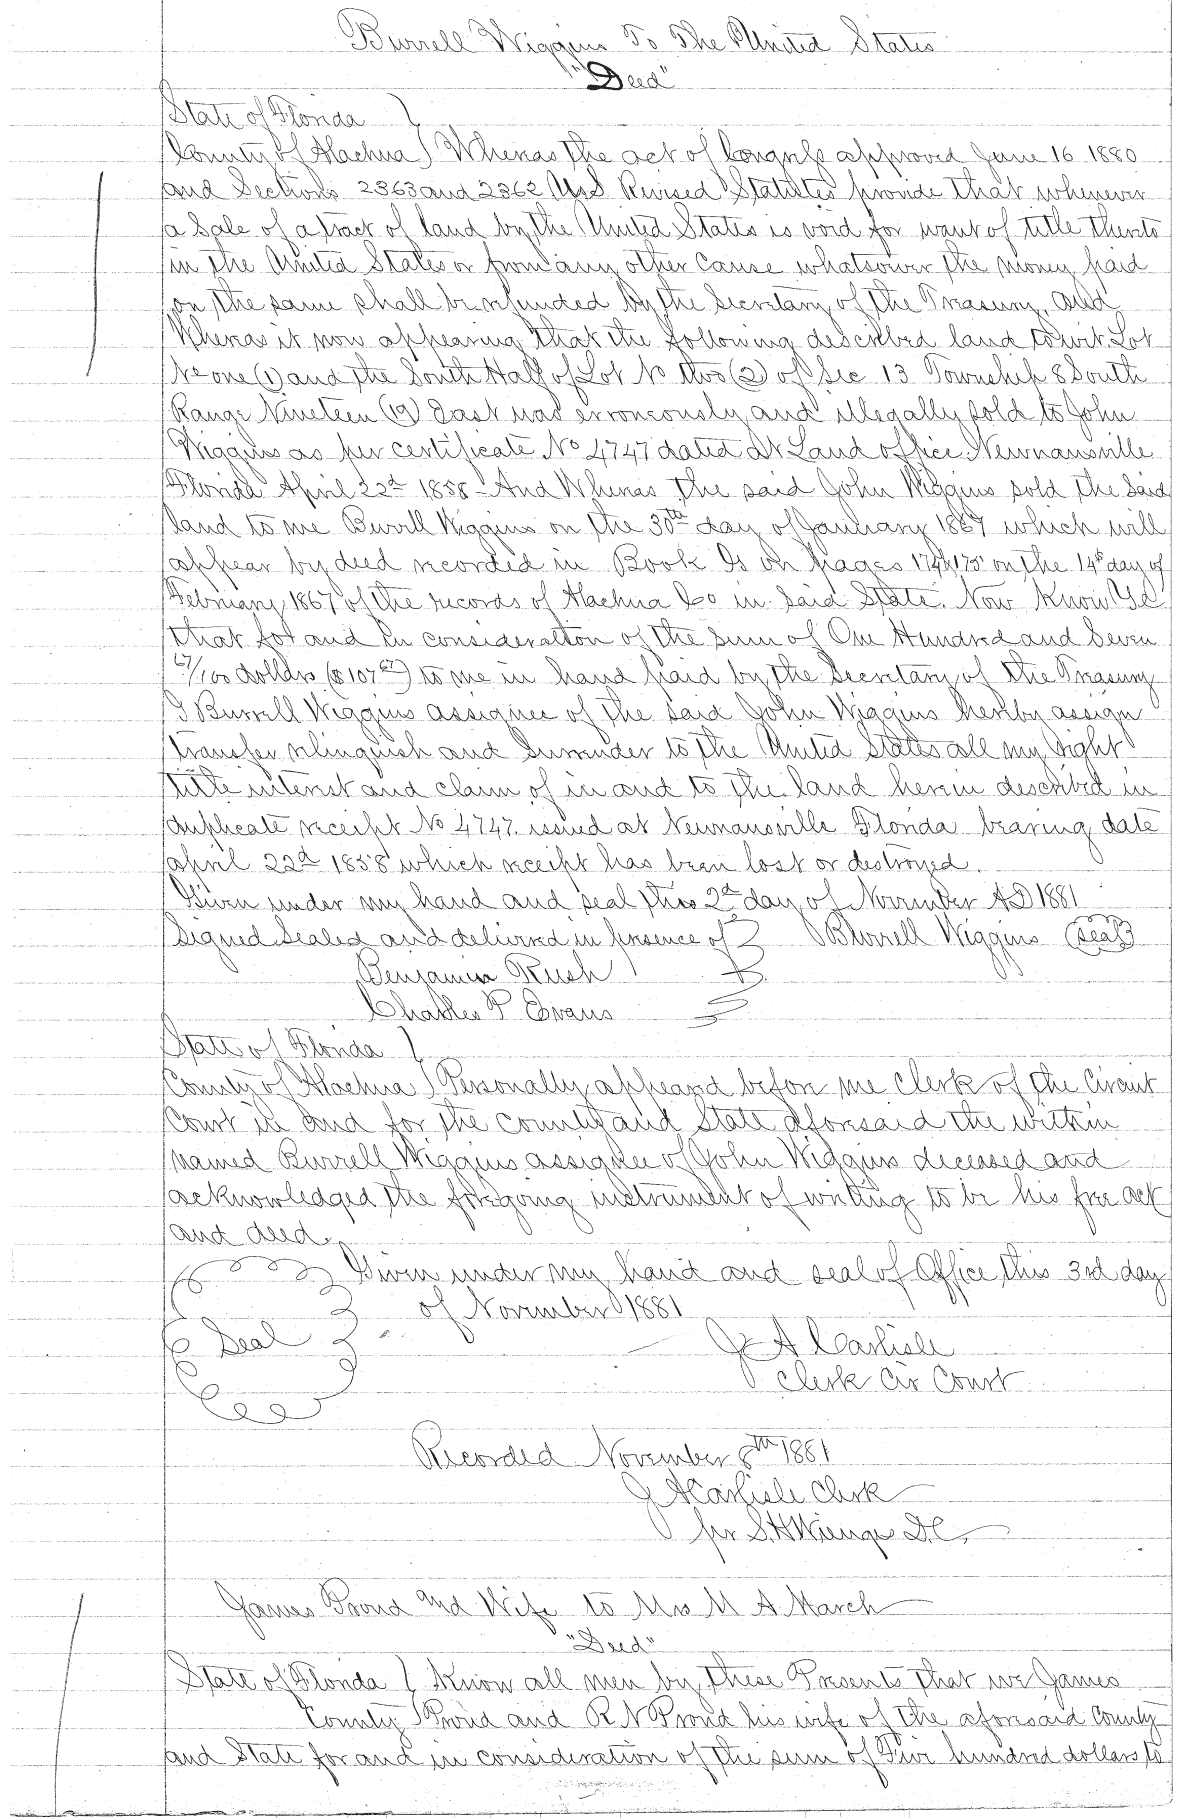 Burrell Wiggins To The United States
"Deed"
State of Florida }
County of Alachua } Whereas the act of Congress approved June 16 1880
and Sections 2363 and 2362 U.S Revised Statutes provide that whenever
a Sale of a tract of land by the United States is void for want of title thereto
in the United States or from any other cause whatsoever the money paid
on the same shall be refunded by the Secretary of the Treasury, and
Whereas it now appearing that the following described land to wit Lot
No one (1) and the South Half of Lot No two (2) of Sec 13 Township 8 South
Range Nineteen (19) East was erroneously and illegally sold to John
Wiggins as per certificate No 4747 dated at Land office Newnansville
Florida April 22d 1858 - And Whereas the said John Wiggins sold the said
land to me Burrell Wiggins on the 30th day of January 1867 which will
appear by deed recorded in Book G on pages 174&175 on the 14th day of
February 1867 of the records of Alachua Co in said State. Now Know Ye
that for and in consideration of the sum of One Hundred and Seven
67/100 dollars ($107 67) to me in hand paid by the Secretary of the Treasury
I Burrell Wiggins assignee of the said John Wiggins hereby assign
transfer relinquish and Surrender to the United States all my right
title interest and claim of in and to the land herein described in
duplicate receipt No 4747. issued at Newnansville Florida bearing date
april 22d 1858 which receipt has been lost or destroyed.
Given under my hand and seal this 2d day of November AD 1881
Signed Sealed and delivered in presence of } Burrell Wiggins (seal)
Benjamin Rush
Charles P Evans
State of Florida }
County of Alachua } Personally appeared before me clerk of the Circuit
Court in and for the county and State aforesaid the within
named Burrell Wiggins assignee of John Wiggins deceased and
acknowledged the foregoing instrument of writing to be his free act
and deed.
Given under my hand and seal of Office this 3rd day
of November 1881
Seal
J A Carlisle
Clerk Cir Court
Recorded November 8th 1881
J A Carlisle Clerk
pr S.H Wienges D.C.
James Proud and Wife to Mrs M A March
"Deed"
State of Florida } Know all men by these Presents that we James
County } Proud and R N Proud his wife of the aforesaid county
and State for and in consideration of the sum of Five hundred dollars to